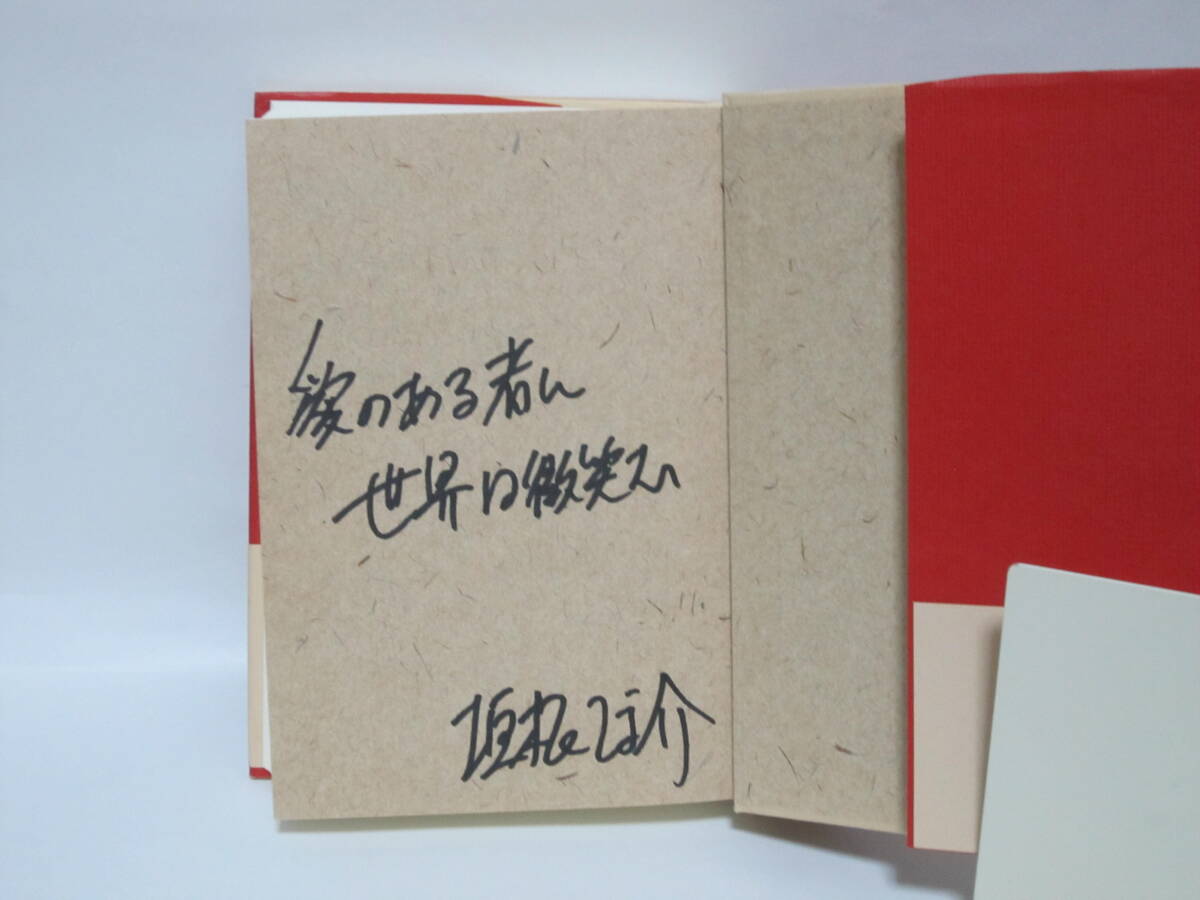 愛のある者に
世界は微笑む
垣根涼介